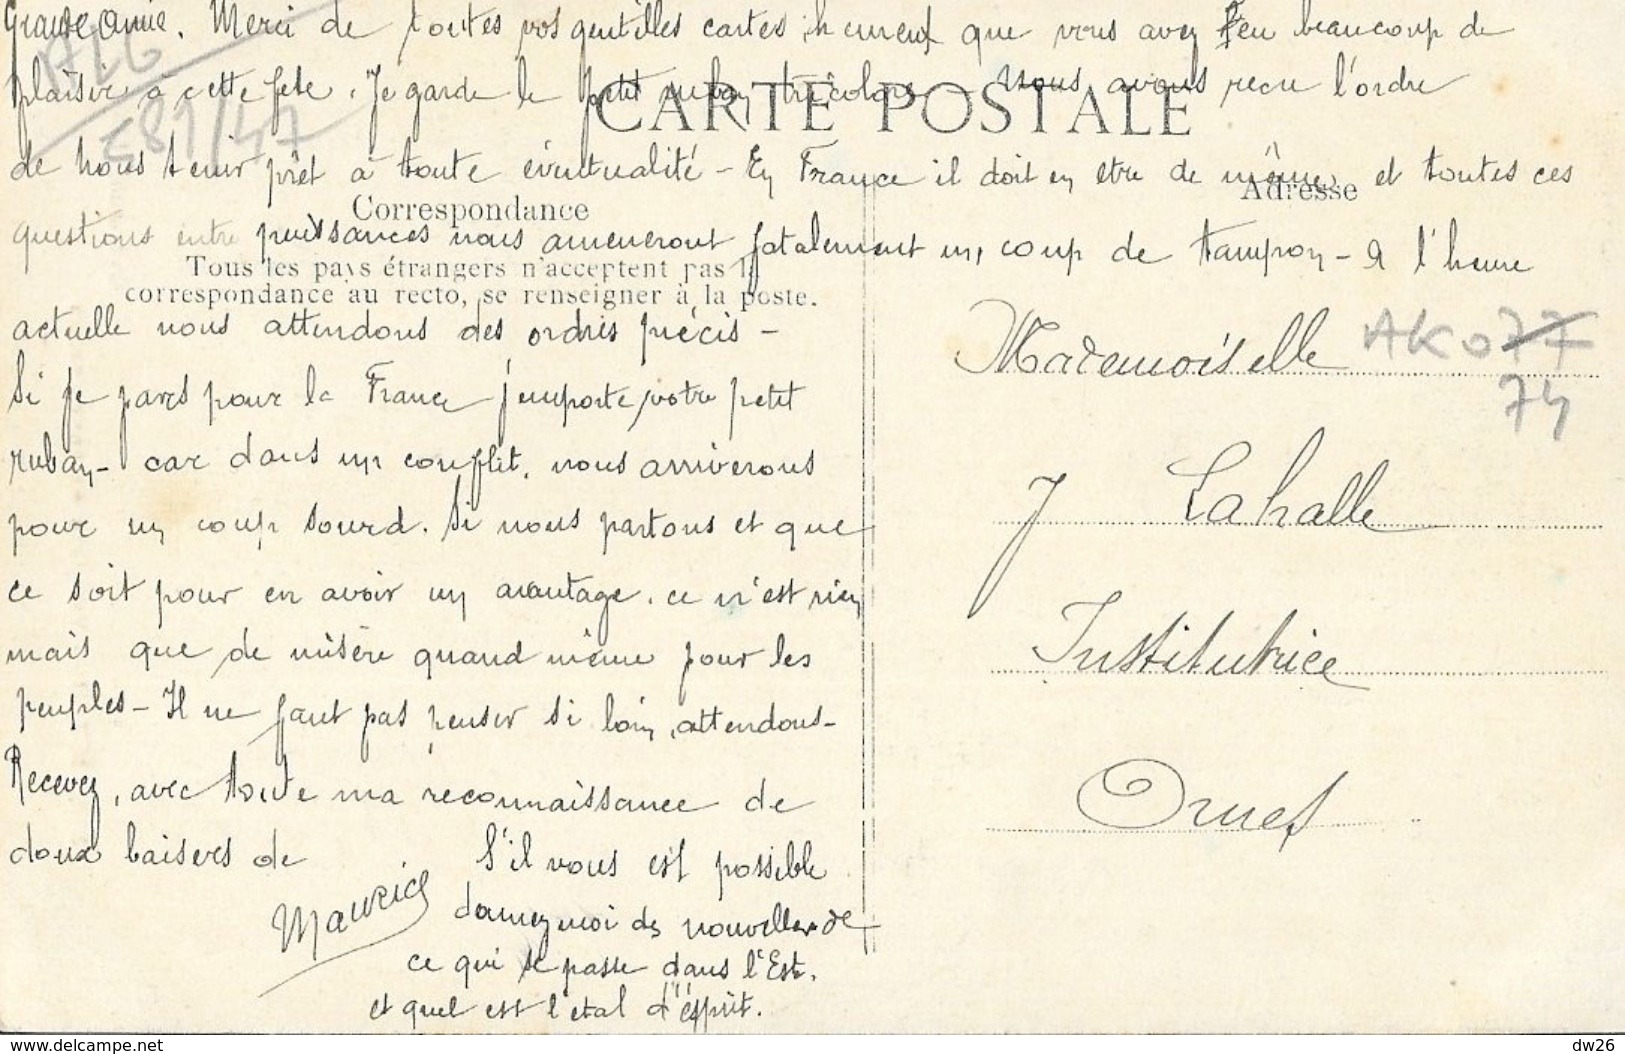 Grande amie. Merci de toutes vos gentilles cartes, heureux que vous avez eu beaucoup de
plaisir à cette fete. Je garde le petit ruban tricolore - Nous avons recu l'ordre
de nous tenir prêt à toute éventualité - En France il doit en etre de même et toutes ces
questions entre puissances nous ameneront fatalement un coup de tampon - A l'heure
actuelle nous attendons des ordres précis -
Si je pars pour la France j'emporte votre petit
ruban - car dans un conflit, nous arriverons
pour un coup sourd. Si nous partons et que
ce soit pour en avoir un avantage. ce n'est rien
mais que de misère quand même pour les
peuples - Il ne faut pas penser si loin, attendons -
Recevez, avec toute ma reconnaissance de
doux baisers de
Maurice
S'il vous est possible
donnez moi des nouvelles de
ce qui se passe dans l'Est.
et quel est l'etat d'esprit.
CARTE POSTALE
Correspondance
Tous les pays étrangers n'acceptent pas la
correspondance au recto, se renseigner à la poste.
Adresse
Mademoiselle
J Lahalle
Institutrice
Ornes
ALG
E81/47
AK077
74
www.delcampe.net
dw26